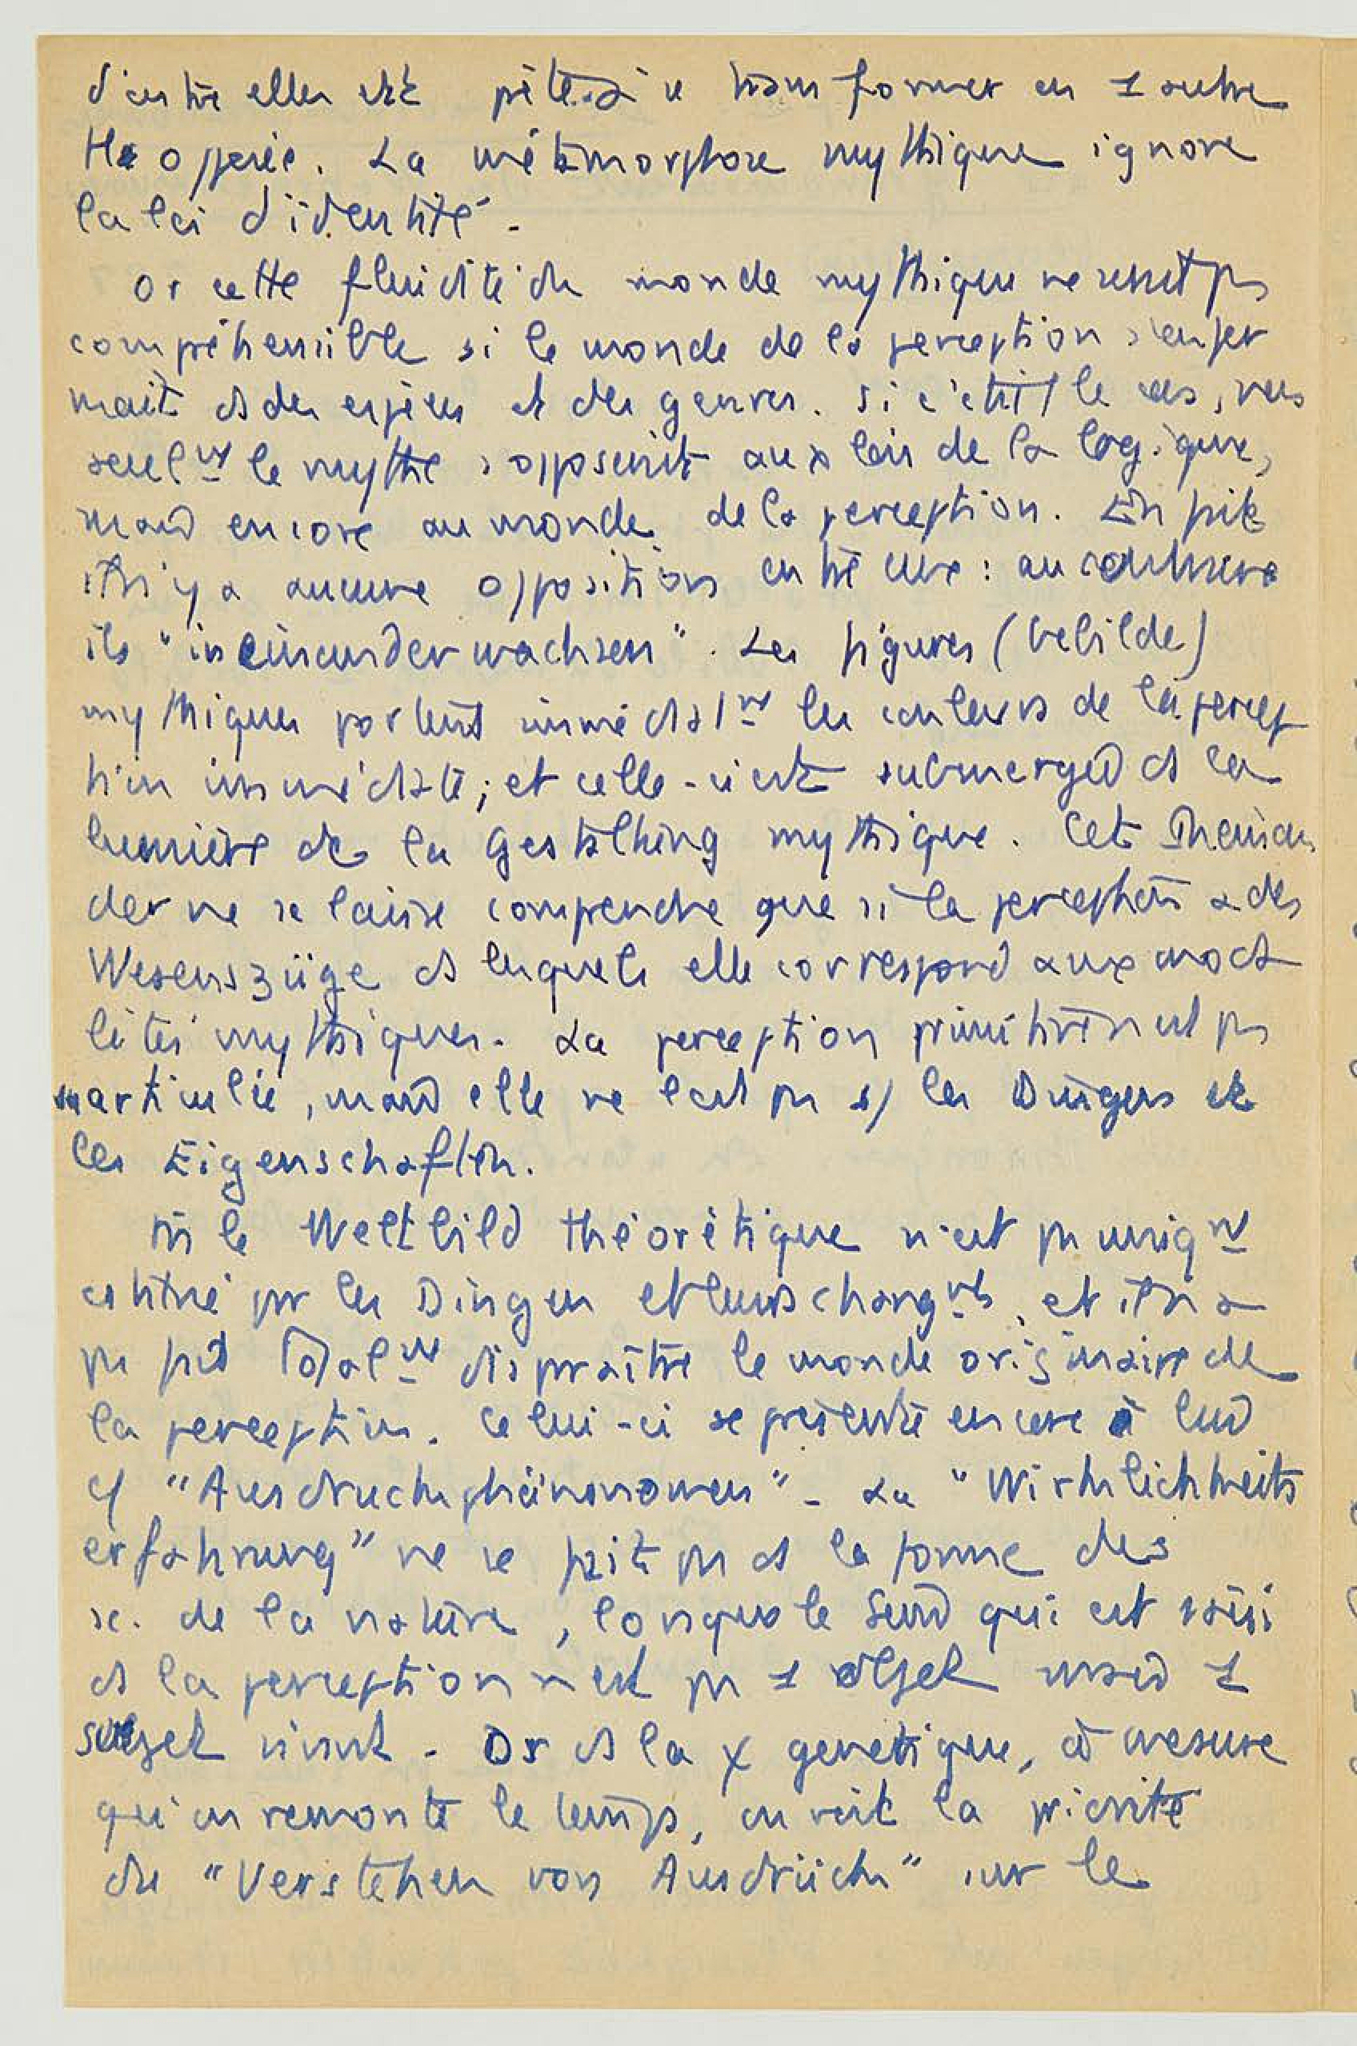 d'entre elles est prête à se transformer en 1 autre
tt opposée. La métamorphose mythique ignore
la loi d'identité.
Or cette fluidité du monde mythique ne serait pas
compréhensible si le monde de la perception s'enfer
mait ds des espèces et des genres. Si c'était le cas, non
seulnt le mythe s'opposerait aux lois de la logique,
mais encore au monde de la perception. En fait
il n'y a aucune opposition entre eux : au contraire
ils "ineinanderwachsen". Les figures (Gebilde)
mythiques portent immédiatnt les couleurs de la percep
tion immédiate ; et celle-ci est submergée ds la
lumière de la Gestaltung mythique. Cet Ineinan
der ne se laisse comprendre que si la perception a des
Wesenszüge ds lesquels elle correspond aux moda
lités mythiques. La perception primitive n'est pas
inarticulée, mais elle ne l'est pas s/ les Dingen et
les Eigenschaften.
le Weltbild théorétique n'est pas uniqnt
cstitué par les Dingen et leurs changnts, et il n'a
pas fait totalnt disparaître le monde originaire de
la perception. Celui-ci se présente encore à lui
"Ausdrucksphänomenen" - La "Wirklichkeits
erfahrung" ne se fait pas ds la forme des
sc. de la nature, lorsque le Sein qui est saisi
ds la perception n'est pas 1 objet mais 1
sujet vivant. Or ds la χ génétique, à mesure
qu'on remonte le temps, on voit la priorité
du "Verstehen von Ausdrück" sur le